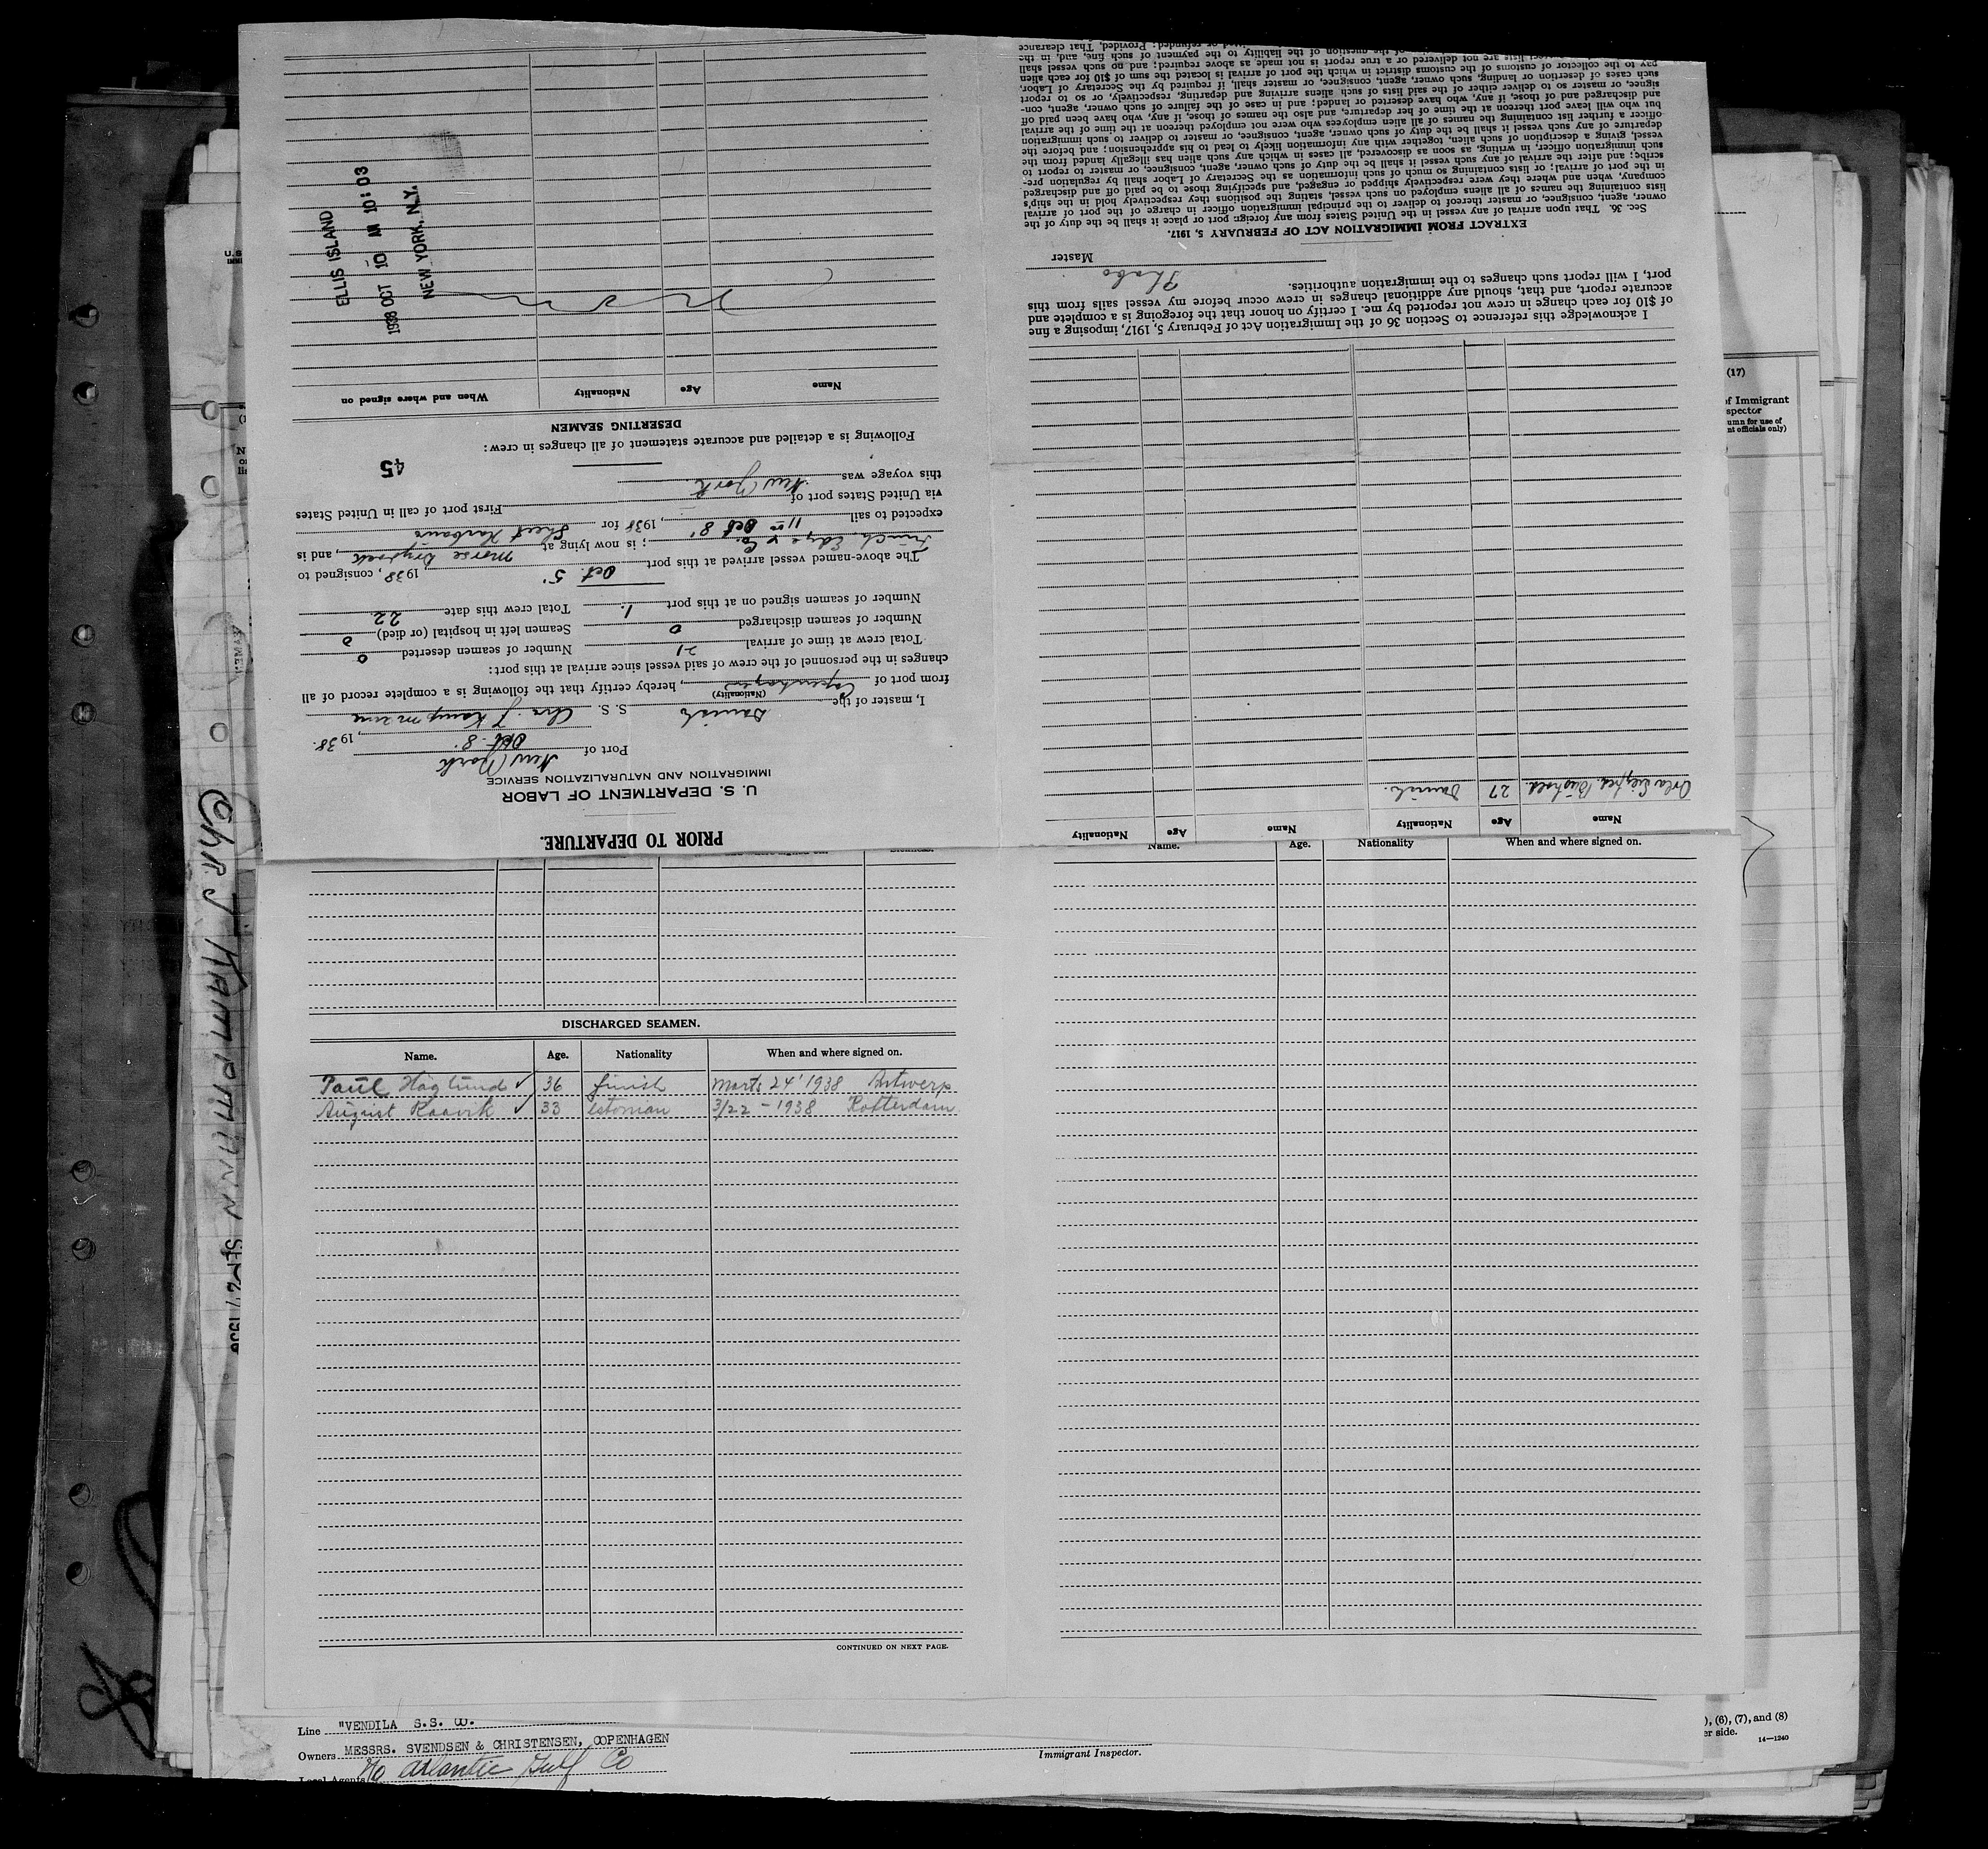 PRIOR TO DEPARTURE.
U. S. DEPARTMENT OF LABOR
IMMIGRATION AND NATURALIZATION SERVICE
Port of New York
Oct 8' , 1938.
I, master of the Danish S. S. Chr. J Kampmann
(Nationality)
from port of Copenhagen, hereby certify that the following is a complete record of all
changes in the personnel of the crew of said vessel since arrival at this port:
Total crew at time of arrival 21 Number of seamen deserted 0
Number of seamen discharged 0 Seamen left in hospital (or died) 0
Number of seamen signed on at this port 1. Total crew this date 22
The above-named vessel arrived at this port Oct. 5' , 1938, consigned to
Funch, Edye & Co. ; is now lying at Morse Drydock, and is
expected to sail 11 Oct 8' , 1938 for Sheet Harbour
via United States port of First port of call in United States
this voyage was New York
45
Following is a detailed and accurate statement of all changes in crew:
DESERTING SEAMEN
Name Age Nationality When and where signed on
ELLIS ISLAND
1938 OCT 10 AM 10:03
NEW YORK, N.Y.
Name Age Nationality Name Age Nationality
27 Danish.
I acknowledge this reference to Section 36 of the Immigration Act of February 5, 1917, imposing a fine
of $10 for each change in crew not reported by me. I certify on honor that the foregoing is a complete and
accurate report, and that, should any additional changes in crew occur before my vessel sails from this
port, I will report such changes to the immigration authorities.
Master
EXTRACT FROM IMMIGRATION ACT OF FEBRUARY 5, 1917.
Sec. 36. That upon arrival of any vessel in the United States from any foreign port or place it shall be the duty of the
owner, agent, consignee, or master thereof to deliver to the principal immigration officer in charge of the port of arrival
lists containing the names of all aliens employed on such vessel, stating the positions they respectively hold in the ship's
company, when and where they were respectively shipped or engaged, and specifying those to be paid off and discharged
in the port of arrival; or lists containing so much of such information as the Secretary of Labor shall by regulation pre-
scribe; and after the arrival of any such vessel it shall be the duty of such owner, agent, consignee, or master to report to
such immigration officer, in writing, as soon as discovered, all cases in which any such alien has illegally landed from the
vessel, giving a description of such alien, together with any information likely to lead to his apprehension; and before the
departure of any such vessel it shall be the duty of such owner, agent, consignee, or master to deliver to such immigration
officer a further list containing the names of all alien employees who were not employed thereon at the time of the arrival
but who will leave port thereon at the time of her departure, and also the names of those, if any, who have been paid off
and discharged and of those, if any, who have deserted or landed; and in case of the failure of such owner, agent, con-
signee, or master so to deliver either of the said lists of such aliens arriving and departing, respectively, or so to report
such cases of desertion or landing, such owner, agent, consignee, or master shall, if required by the Secretary of Labor,
pay to the collector of customs of the customs district in which the port of arrival is located the sum of $10 for each alien
lists are not delivered or a true report is not made as above required; and no such vessel shall
the question of the liability to the payment of such fine, and, in the
or refunded: Provided, That clearance
DISCHARGED SEAMEN.
Name. Age. Nationality When and where signed on.
Paul Höglund 36 finish Marts 24' 1938 Antwerp
August Raavik 33 estonian 3/22 - 1938 Rotterdam
CONTINUED ON NEXT PAGE.
Name. Age. Nationality When and where signed on.
(17)
of Immigrant
spector
umn for use of
nt officials only)
Chr J KAMPMANN
Line "VENDILA S.S. CO.
Owners MESSRS. SVENDSEN & CHRISTENSEN, COPENHAGEN
Local Agents Atlantic Gulf Co
Immigrant Inspector.
), (6), (7), and (8)
er side.
14—1240